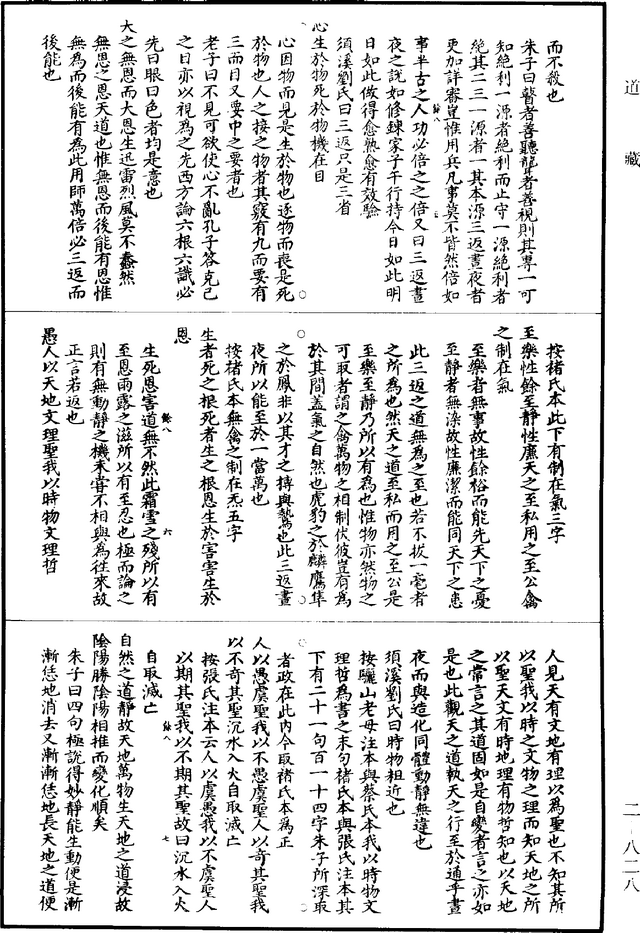 道藏
而不殺也
朱子曰瞽者善聽聾者善視則其專一可
知絕利一源者絕利而止守一源絕利者
絕其二三一源者一其本源三返晝夜者
更加詳審豈惟用兵凡事莫不皆然倍如
事半古之人功必倍之之倍又曰三返晝
夜之說如修鍊家子午行持今日如此明
日如此做得愈熟愈有效驗
須溪劉氏曰三返只是三省
心生於物死於物機在目
心因物而見是生於物也逐物而喪是死
於物也人之接之物者其竅有九而要有
三而目又要中之要者也
老子曰不見可欲使心不亂孔子答克己
之目亦以視為之先西方論六根六識必
先曰眼曰色者均是意也
天之無恩而大恩生迅雷烈風莫不蠢然
無恩之恩天道也惟無恩而後能有恩惟
無為而後能有為此用師萬倍必三返而
後能也
按褚氏本此下有制在氣三字
至樂性餘至靜性廉天之至私用之至公禽
之制在氣
至樂者無事故性餘裕而能先天下之憂
至靜者無染故性廉潔而能同天下之患
此三返之道無為之至也若不拔一毫者
之所為也然天之道至私而用之至公是
至樂至靜乃所以有為也惟物亦然物之
可取者謂之禽萬物之相制伏彼豈有為
於其間蓋氣之自然也虎豹之於麟鷹隼
之於鳳非以其才之搏與鷙也此三返晝
夜所以能至於一當萬也
按褚氏本無禽之制在炁五字
生者死之根死者生之根恩生於害害生於
恩
生死恩害道無不然此霜雪之殘所以有
至恩雨露之滋所以有至忍也極而論之
則有無動靜之機未嘗不相與為往來故
正言若返也
愚人以天地文理聖我以時物文理哲
人見天有文地有理以為聖也不知其所
以聖我以時之文物之理而知天地之所
以聖天文有時地理有物哲知也以天地
之常言之其道固如是自變者言之亦如
是也此觀天之道執天之行至於通乎晝
夜而與造化同體動靜無違也
須溪劉氏曰時物粗近也
按驪山老母注本與蔡氏本我以時物文
理哲為書之末句褚氏本與張氏注本其
下有二十一句百一十四字朱子所深取
者政在此內今取褚氏本為正
人以愚虞聖我以不愚虞聖人以奇其聖我
以不奇其聖沉水入火自取滅亡
按張氏注本云人以虞愚我以不虞聖人
以期其聖我以不期其聖故曰沉水入火
自取滅亡
自然之道靜故天地萬物生天地之道浸故
陰陽勝陰陽相推而變化順矣
朱子曰四句極說得妙靜能生動便是漸
漸恁地消去又漸漸恁地長天地之道便
二一八二八